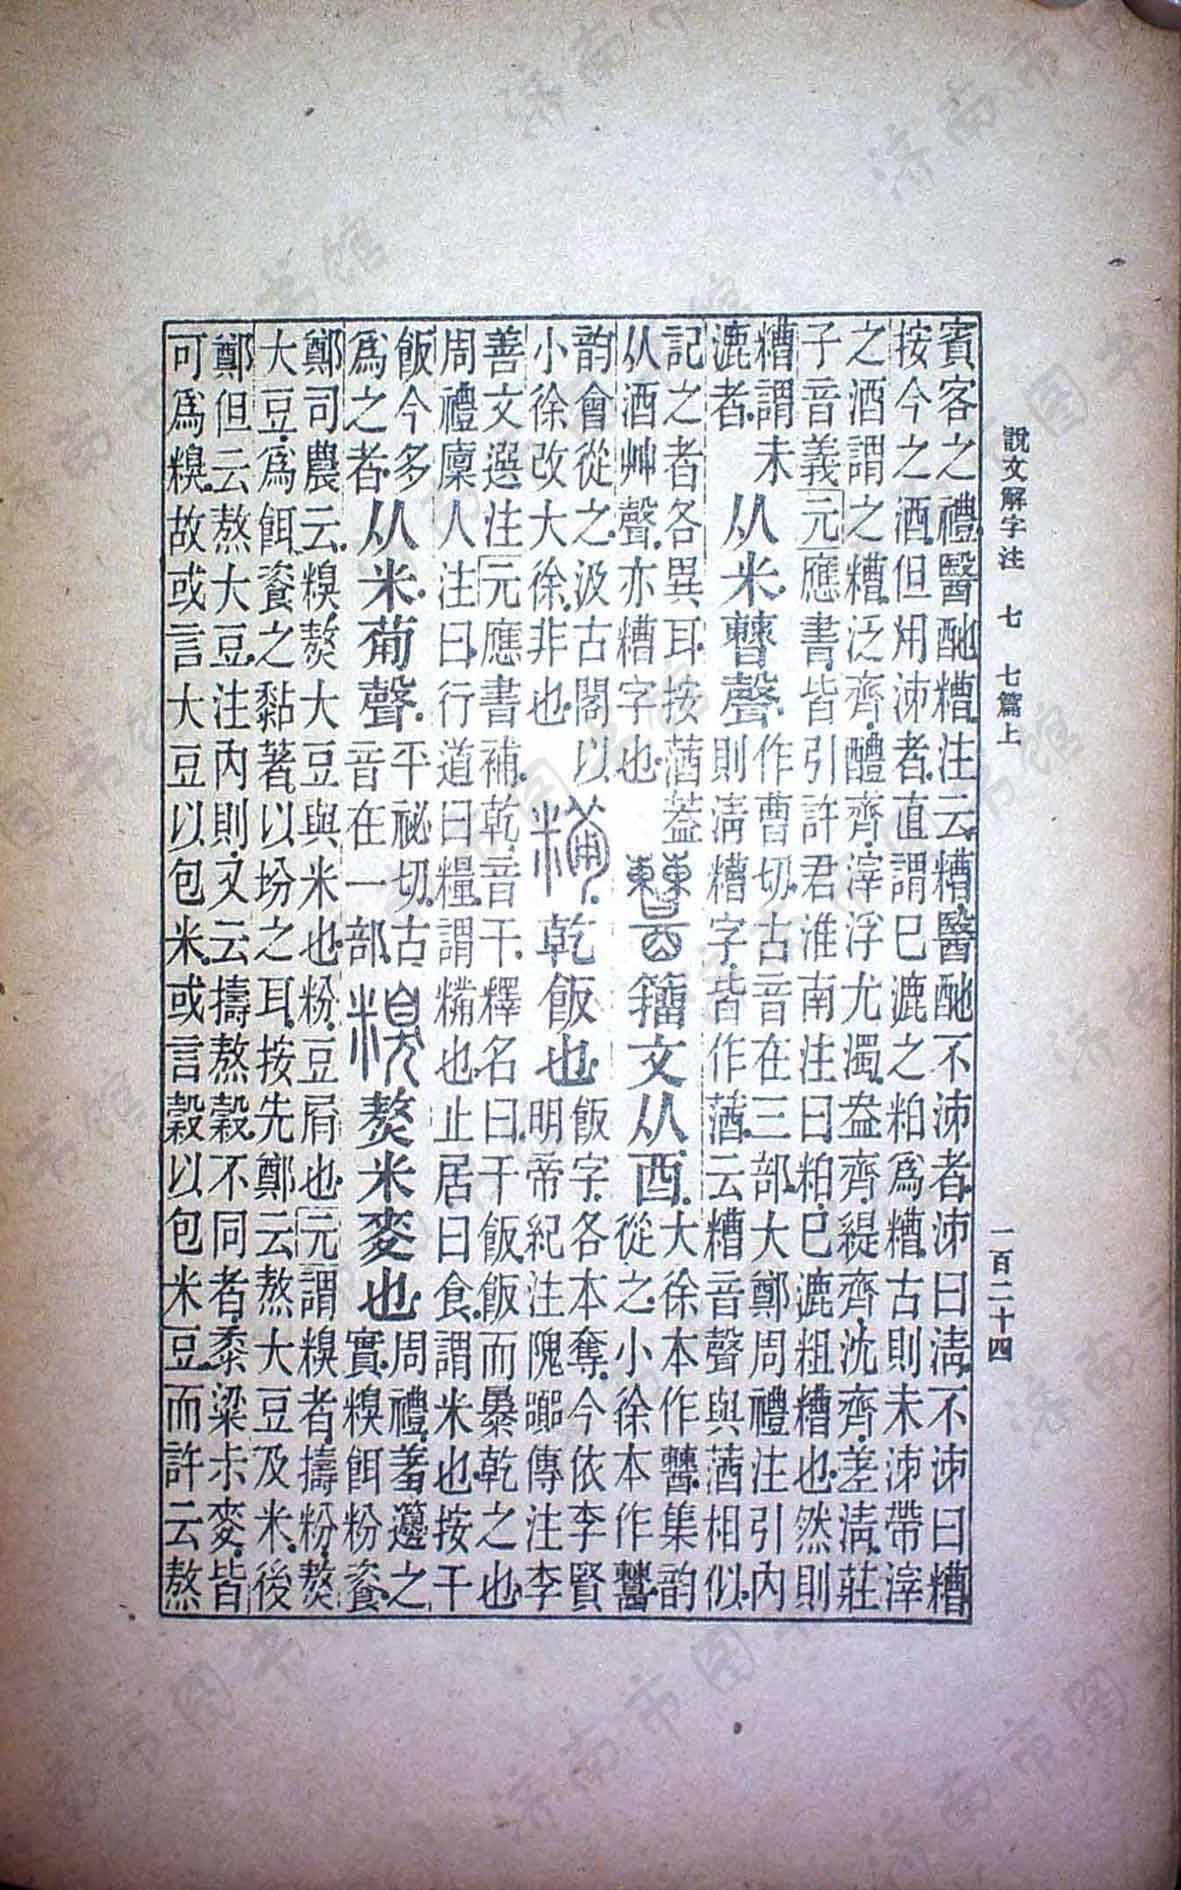 說文解字注 七 七篇上 一百二十四
賓客之禮醫酏糟注云糟醫酏不泲者泲曰淸不泲曰糟
按今之酒但用泲者直謂已漉之粕爲糟古則未泲帶滓
之酒謂之糟泛齊醴齊滓浮尤濁盎齊緹齊沈齊差淸莊
子音義元應書皆引許君淮南注曰粕已漉粗糟也然則
糟謂未
漉者
从米𣍘聲
作曹切古音在三部大鄭周禮注引內
則淸糟字皆作𦵩云糟音聲與𦵩相似
記之者各異耳按𦵩蓋
从酒艸聲亦糟字也
籒文从酉
大徐本作集韵
從之小徐本作
韵會從之汲古閣以
小徐改大徐非也
糒乾飯也
飯字各本奪今依李賢
明帝紀注隗囂傳注李
善文選注元應書補乾音干釋名曰干飯飯而暴乾之也
周禮廩人注曰行道曰糧謂糒也止居曰食謂米也按干
飯今多
爲之者
从米𤰇聲
平祕切古
音在一部
糗𤎅米麥也
周禮羞籩之
實糗餌粉餈
鄭司農云糗𤎅大豆與米也粉豆屑也元謂糗者擣粉𤎅
大豆爲餌餈之黏著以坋之耳按先鄭云熬大豆及米後
鄭但云熬大豆注內則又云擣熬穀不同者黍粱尗麥皆
可爲糗故或言大豆以包米或言穀以包米豆而許云熬